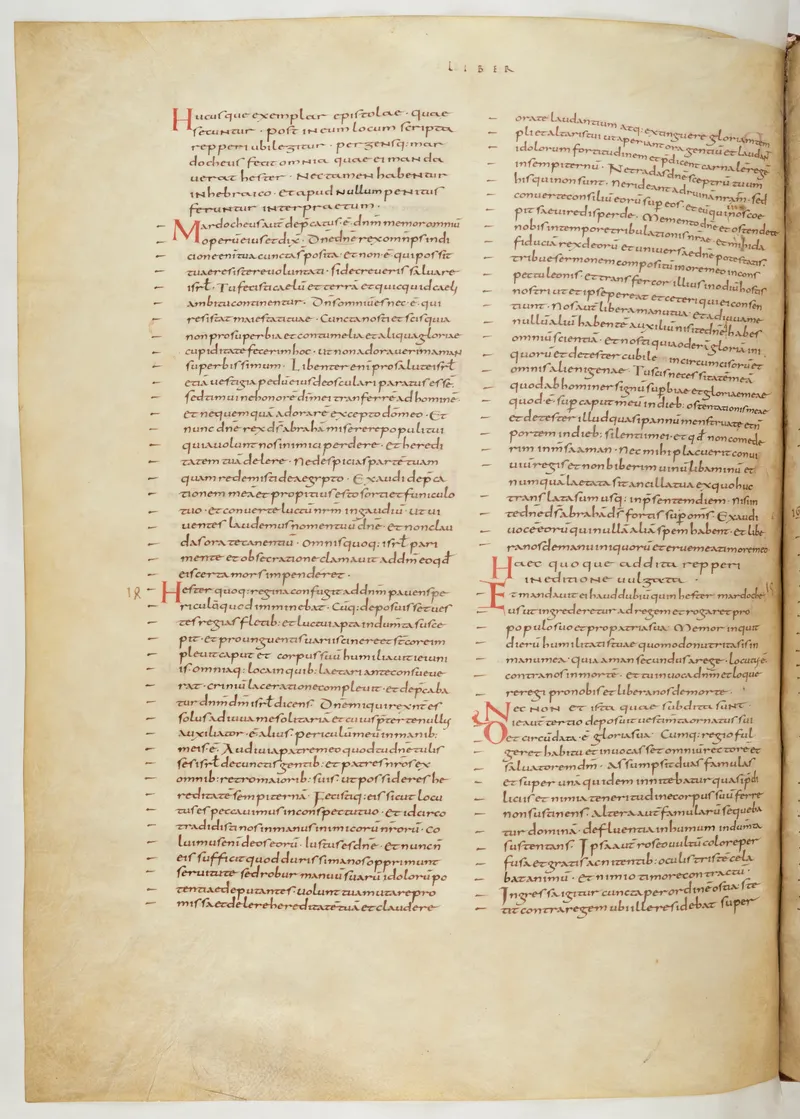 LIBER
Hucusque exemplar epistolae · quae
secuntur · post in eum locum scripta
repperi ubi legitur · pergensq; mar
docheus fecit omnia quae ei manda
uerat hester · Nec tamen habentur
in hebraico · et apud nullum penitus
feruntur interpraetum ·
Mardocheus aut̄ dep̄catus · ē · dnm̄ memor omniū
operū eius et dix̄ · Dne dn̄e rex omnp̄s in di
cione enī tua cuncta s̄ posita · et non · ē · qui possit
tuae resistere uoluntati · si decreueris saluare
isrl̄ · Tu fecisti caelū et terrā et quicquid caeli
ambitu continentur · Dn̄s omniū es nec · ē · qui
resistat maiestati tuae · Cuncta nosti et scis quia
non pro superbia et contumelia et aliqua gloriae
cupiditate fecerim hoc · ut non adorauerim aman
superbissimum · Libenter enī pro salute isrl̄
etiā uestigia pedū eius deosculari paratus essē
sed timui ne honorē dī mei transferrē ad hominē
et nequemquā adorarē excepto dō meo · Et
nunc dn̄e rex ds̄ abrahā miserere populi tui
quia uolunt nos inimici perdere · et heredi
tatem tuā delere · Ne despicias partē tuam
quam redemisti de aegypto · Exaudi dep̄ca
tionem meā et propitius esto sorti et funiculo
tuo · et conuerte luctū nr̄m in gaudiū · ut ui
uentes laudemus nomen tuū dn̄e · et non clau
das ora te canentiū · Omnisquoq; isrl̄ pari
mente et obsecratione clamauit ad dn̄m eo qd̄
eis certa mors impenderet ·
Hester quoq; regina confugit ad dnm̄ pauens pe
riculū quod imminebat · Cūq; deposuisset ues
tes regias fletib; et luctui apta indumta susce
pit · et pro unguentis uariis cinere et stercore im
pleuit caput et corpus suū humiliauit ieiuni
is · omniaq; loca in quib; laetari ante consueue
rat · criniū laceratione compleuit · et dep̄caba
tur dnm̄ dm̄ isrl̄ dicens · Dn̄e mi qui rex nr̄ es
solus adiuua me solitariā et cuius p̄ter te nullus
auxiliator · ē · alius · periculū meū in manib;
meis ē · Audiui a patre meo quod tu dn̄e tulis
ses isrl̄ de cunctis gentib; et patres nr̄os ex
omnib; retro maiorib; suis · ut possideres he
reditatē sempiternā · Fecistiq; eis sicut locu
tus es peccauimus in conspectu tuo · et idcirco
tradidisti nos in manus inimicorū nr̄orū · Co
luimus enī deos eorū · Iustus es dn̄e · et nunc n̄
eis sufficit quod durissima nos opprimunt
seruitute · sed robur manuū suarū idolorū po
tentiae deputantes uolunt tua mutare pro
missa et delere hereditatē tuā et claudere
orate laudantium atq; extinguere gloriam tem
pli et altaris tui ut aperiant ora gentiū et laudent
idolorum fortitudinem et p̄dicent carnalē regē
in sempiternū · Ne tradas dn̄e sceptrū tuum
his qui non sunt · ne rideant ad ruinā nr̄am · sed
conuerte consiliū eorū sup eos · et eū qui in nos coe
pit saeuire disperde · Memento dn̄e et ostende te
nobis in tempore tribulationis nr̄ae · et mihi da
fiducia rex deorū et uniuersae dn̄e potestatis ·
tribue sermonem compositū in ore meo in cons
pectu leonis · et transfer cor illius in odiū hostis
nostri ut et ipse pereat et ceteri qui ei consen
tiunt · Nos aut̄ libera manu tua · et adiuua me
nullū aliū habentē auxiliū nisi te dn̄e · qui habes
omniū scientiā · Et nosti quia oderī gloriā ini
quorū et detester cubile incircumcisorū et
omnis alienigenae · Tu scis necessitatē meā
quod abhominer signū supbiae et gloriae meae
quod · ē · sup caput meū in dieb; ostentationis meae
et detester illud quasi pannū menstruatae et n̄
portem in dieb; silentii mei · et qd̄ non comede
rim in msā aman · Nec mihi placuerit conui
uiū regis et non biberim uinū libaminū et
numquā laetata sit ancilla tua ex quo huc
translata sum usq; in p̄sentem diem · nisi in
te dn̄e ds̄ abrahā · Ds̄ fortis sup om̄s · Exaudi
uocē eorū qui nullā aliā spem habent · et libe
ra nos de manu iniquorū et erue me a timore meo
Haec quoque addita repperi
in editione uulgata ·
Et mandauit ei haud dubiū quin hester mardoche
us ut ingrederetur ad regem et rogaret pro
populo suo et pro patria sua · Memor inquit
dierū humilitatis tuae quomodo nutrita sis in
manu mea · quia aman secundus a rege · locutus ē ·
contra nos in morte · et tu inuoca dnm̄ et loque
re regi pro nobis et libera nos de morte ·
Nec non et ista quae subdita sunt ·
Die aut̄ tertio deposuit uestimta ornatus sui
et circūdata · ē · gloria sua · Cumq; regio ful
geret habitu et inuocasset omniū rectore et
saluatorem dm̄ · Assumpsit duas famulas
et super unā quidem innitebatur quasi p̄ di
liciis et nimia teneritudine corpus suū ferre
non sustinens · Altera aut̄ famularū sequeba
tur dominā · defluentia in humum indumta
sustentans · Ipsa aut̄ roseo uultū colore per
fusa et gratis ac nitentib; oculis tristē cela
bat animū · et nimio timore contractū ·
Ingressa igitur cuncta per ordinē ostia ste
tit contra regem ubi ille residebat super